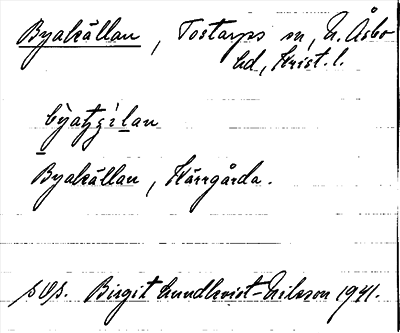 Byakällan, Tostarps sn, N. Åsbo
hd, Krist. l.
Byakällan, Kärrgårda.
sOs. Birgit Lundkvist-Nilsson 1941.